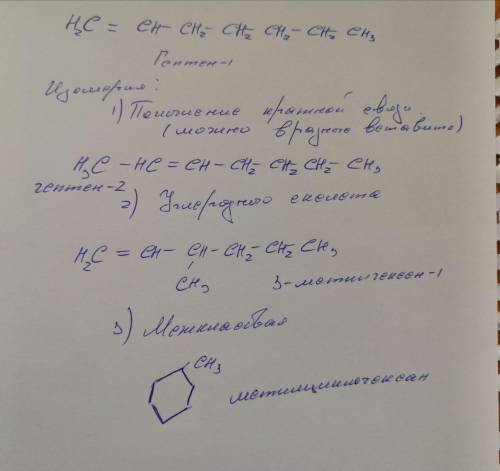 H₂C = CH - CH₂ - CH₂ - CH₂ - CH₂ - CH₃
Гептен-1
Изомерия:
1) Положение кратной связи
(можно в разные вставить)
H₃C - HC = CH - CH₂ - CH₂ - CH₂ - CH₃
гептен-2
2) Углеродного скелета
H₂C = CH - CH - CH₂ - CH₂ - CH₃
CH₃
3-метилгексен-1
3) Межклассовая
CH₃
метилциклогексан